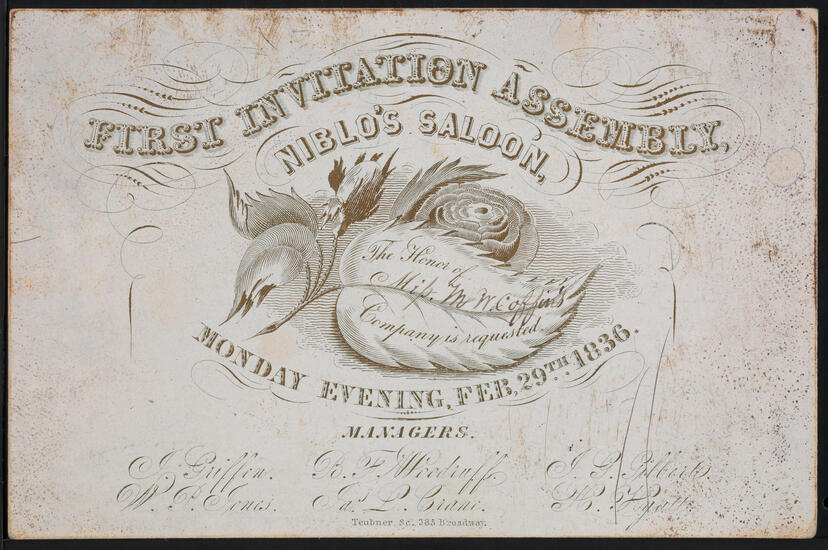 FIRST INVITATION ASSEMBLY,
NIBLO'S SALOON,
The Honor of
Miss. M W. Coffin's
Company is requested.
MONDAY EVENING, FEB, 29TH. 1836.
MANAGERS.
J. Griffin. B. F. Woodruff. J. G. Gilbert.
W. P. Jones. Jas. L. Crane. H. Hyatt.
Teubner, Sc. 385 Broadway.